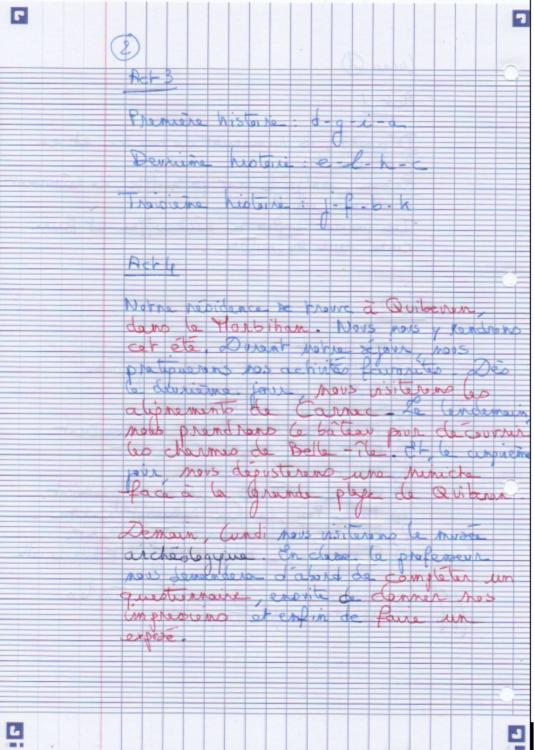 2
Act 3
Première histoire : d-g-i-a
Deuxième histoire : e-l-h-c
Troisième histoire : j-f-b-k
Act 4
Notre résidence se trouve à Quiberon,
dans le Morbihan. Nous nous y rendrons
cet été. Durant notre séjour, nous
pratiquerons nos activités favorites. Dès
le deuxième jour, nous visiterons les
alignements de Carnac. Le lendemain,
nous prendrons le bâteau pour découvrir
les charmes de Belle-île. Et, le cinquième
jour, nous dégusterons une niniche
face à la Grande plage de Quiberon.
Demain, lundi nous visiterons le musée
archéologyque. En classe, le professeur
nous demandera d'abord de compléter un
questionnaire, ensuite de donner nos
impressions et enfin de faire un
exposé.